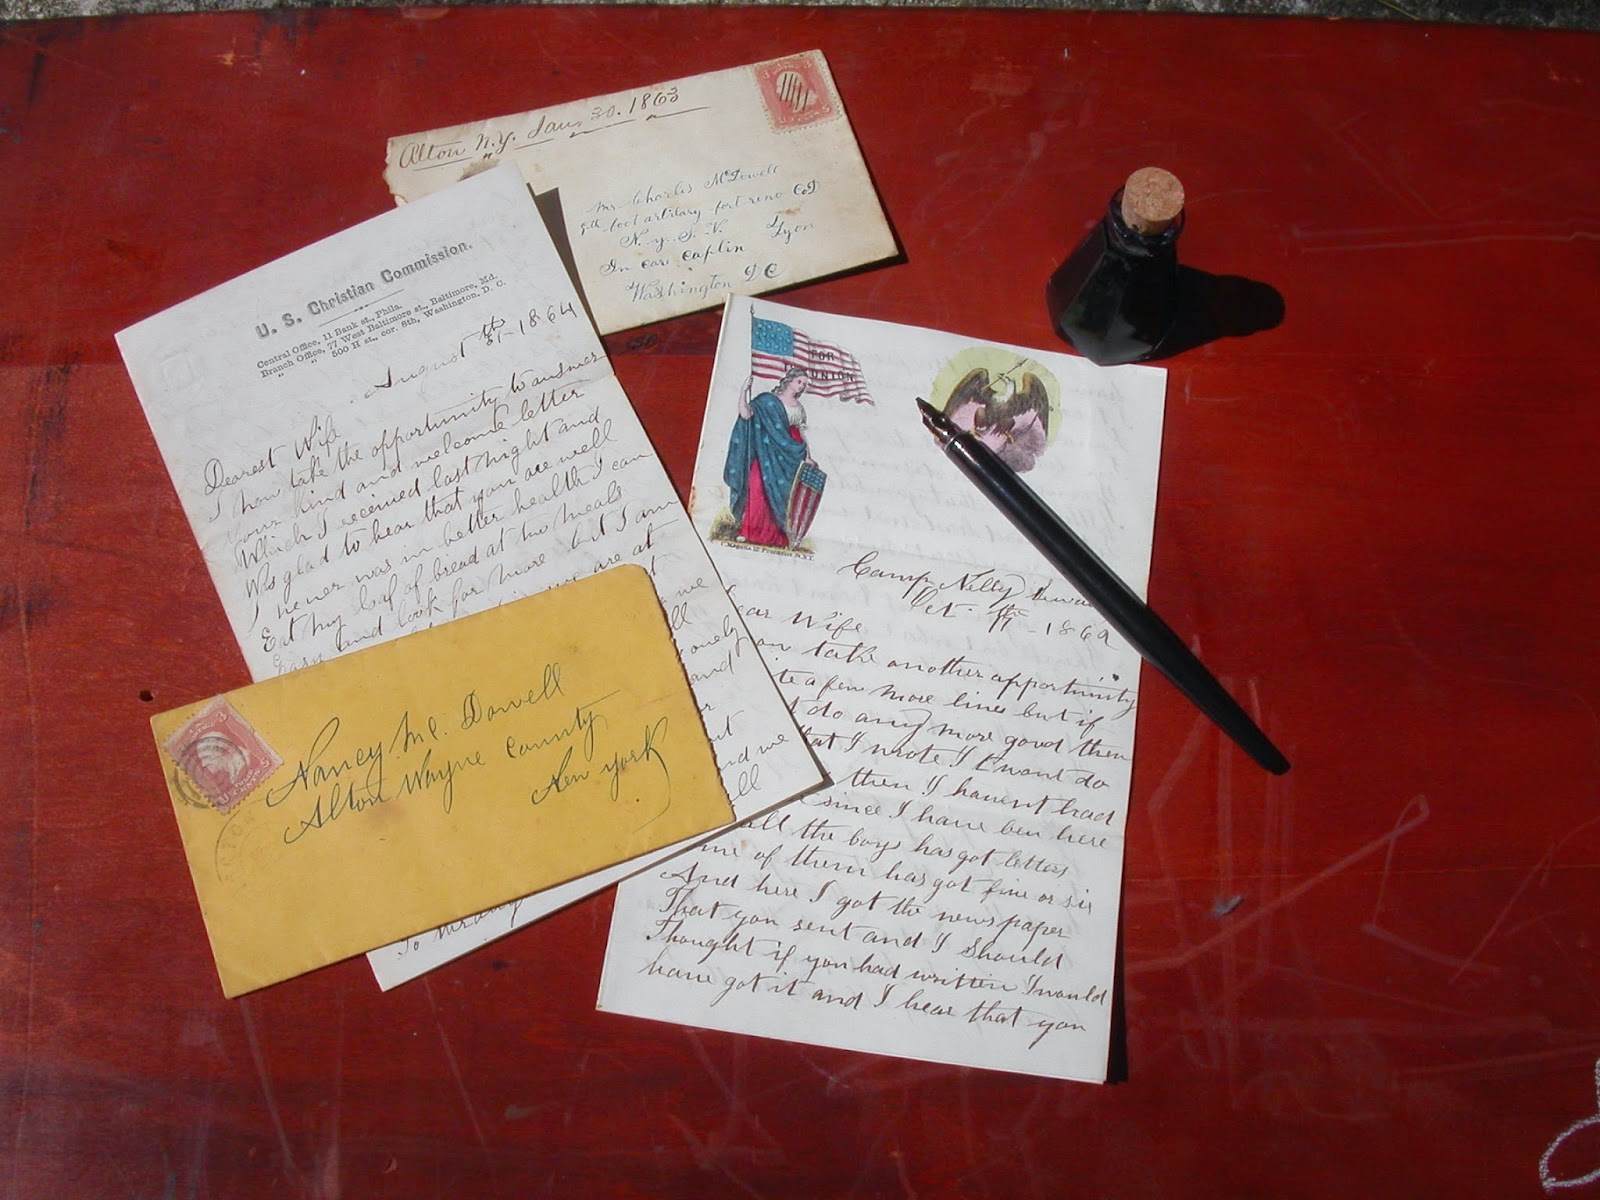 Alton N.Y. Jan, 30. 1863
Mr. Charles McDowell
9th foot artilary fort reno Co D
N. y. S. V.
In Care Caplin Lyon
Washington D C
U. S. Christian Commission.
Central Office, 11 Bank st., Phila.
Branch Office, 77 West Baltimore st., Baltimore, Md.
" " 500 H st., cor. 8th, Washington, D. C.
August 1864
Dearest Wife
I now take the opportunity to answer
your kind and welcome letter
Which I received last night and
Was glad to hear that you are well
I never was in better health I can
Eat my loaf of bread at two meals
and look for more but I am
are at
we
and
and we
To
Nancy Mc. Dowell
Alton Wayne County
New york
FOR
UNION
Camp Nelly
Oct 186
ear Wife
take another opportunity
te a few more lines but if
t do any more good then
hat I wrote I t wont do
then I havent had
since I have ben here
all the boys has got letters
me of them has got five or six
And here I got the news paper
That you sent and I Should
Thought if you had written I would
have got it and I hear that you